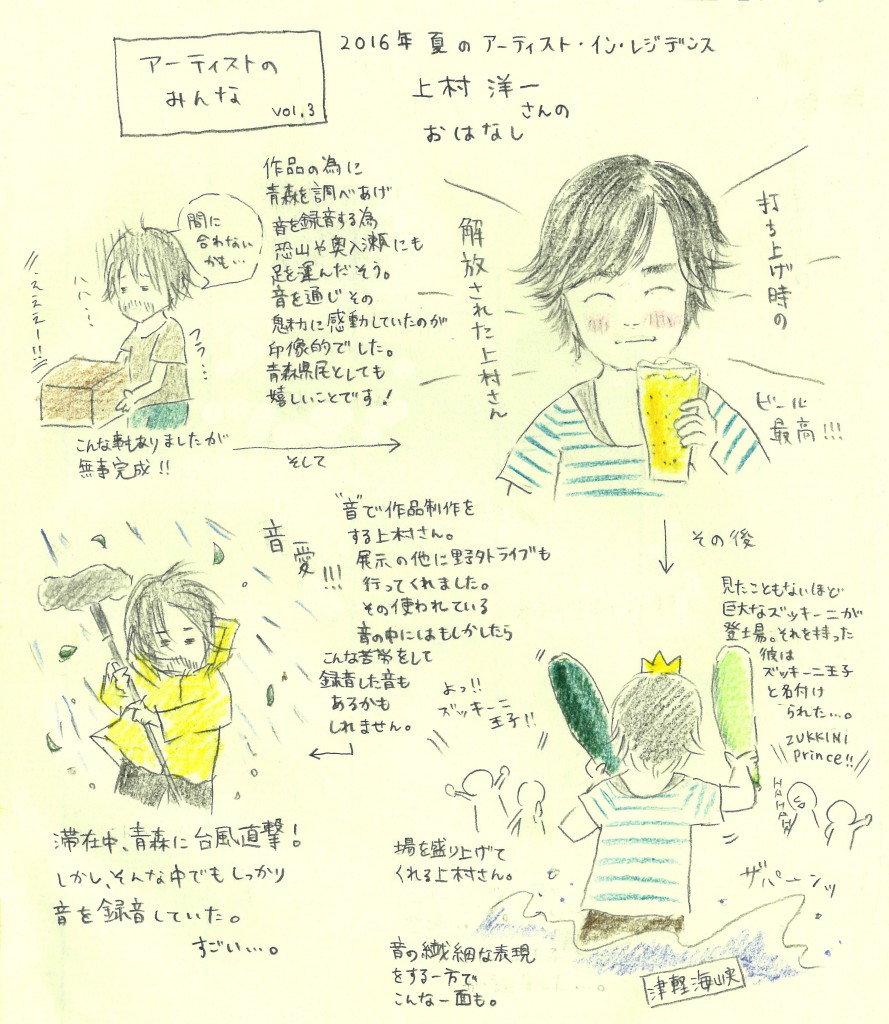 アーティストの
みんな
vol.3
2016年 夏の アーティスト・イン・レジデンス
上村 洋一
さんの
おはなし
間に
合わない
かも…
ええええー!!
ハハ…
フラ…
こんな事もありましたが
無事完成!!
作品の為に
青森を調べあげ
音を録音する為
恐山や奥入瀬にも
足を運んだそう。
音を通じその
魅力に感動していたのが
印像的でした。
青森県民としても
嬉しいことです!
そして
打ち上げ時の
解放された上村さん
ビール
最高!!!
その後
見たこともないほど
巨大なズッキーニが
登場。それを持った
彼は
ズッキーニ王子
と名付け
られた…。
ZUKKINI
prince!!
HAHAHA
よっ!!
ズッキーニ
王子!!
場を盛り上げて
くれる上村さん。
ザパーンッ
津軽海峡
音の繊細な表現
をする一方で
こんな一面も。
"音"で作品制作を
する上村さん。
展示の他に野外ライブも
行ってくれました。
その使われている
音の中にはもしかしたら
こんな苦労をして
録音した音も
あるかも
しれません。
音愛!!!
滞在中、青森に台風直撃!
しかし、そんな中でもしっかり
音を録音していた。
すごい…。